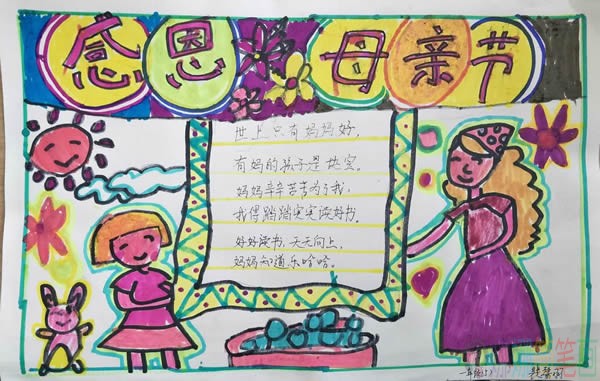 感恩母亲节
世上只有妈妈好,
有妈的孩子是块宝。
妈妈辛辛苦苦为了我,
我得踏踏实实读好书。
好好读书,天天向上,
妈妈知道乐哈哈。